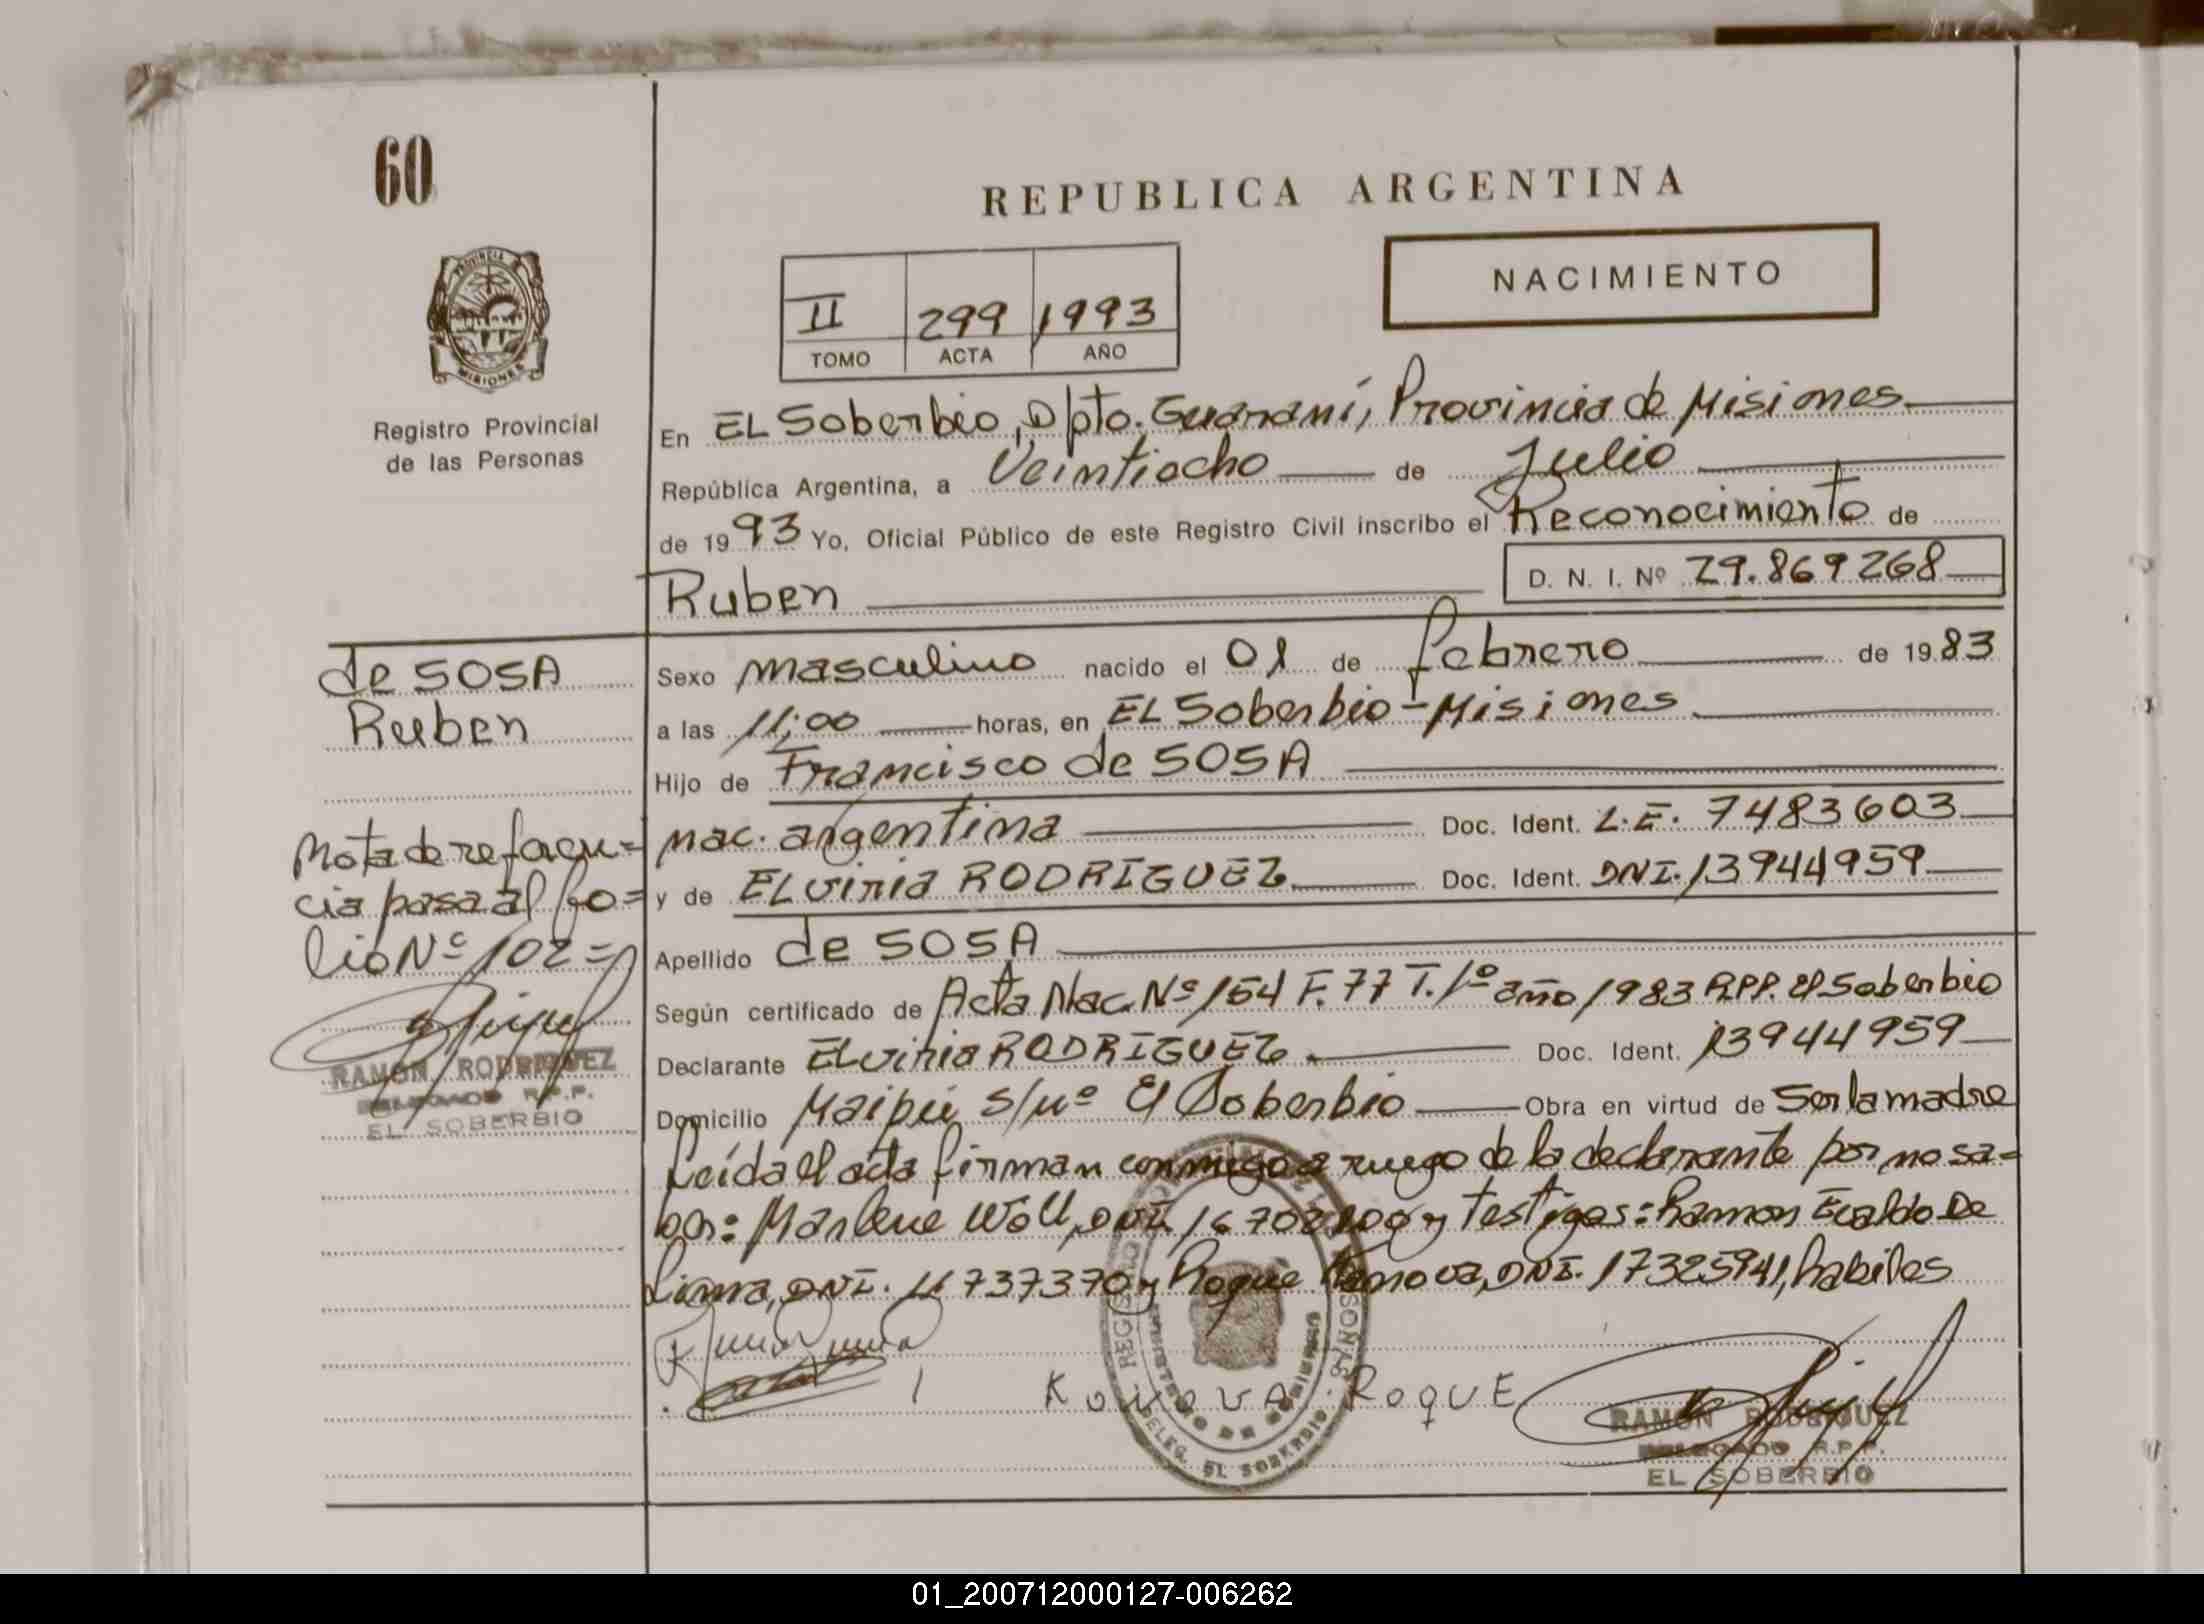 60
REPUBLICA ARGENTINA
PROVINCIA
MISIONES
Registro Provincial
de las Personas
NACIMIENTO
II 299 1993
TOMO ACTA AÑO
En EL Soberbio, Dpto. Guaraní, Provincia de Misiones
República Argentina, a Veintiocho de Julio
de 1993 Yo, Oficial Público de este Registro Civil inscribo el Reconocimiento de
Ruben D. N. I. Nº 29.869268
de SOSA
Ruben
Sexo masculino nacido el 01 de febrero de 1983
a las 11;00 horas, en EL Soberbio - Misiones
Hijo de Francisco de SOSA
nac. argentina Doc. Ident. L.E. 7483603
y de ELvinia RODRIGUEZ Doc. Ident. DNI. 13944959
Apellido de SOSA
Según certificado de Acta Nac. Nº 154 F. 77 T. 1º año 1983 R.P.P. El Soberbio
Declarante ELvinia RODRIGUEZ Doc. Ident. 13944959
Domicilio Maipú s/nº El Soberbio Obra en virtud de Ser la madre
Leída el acta firman conmigo a ruego de la declarante por no sa=
ber: Marlene Woll, DNI. 16702 y testigos: Ramon Evaldo De
Lima, DNI. 11737370 y Roque Konova, DNI. 17325941, habiles
Nota de referen=
cia pasa al fo=
lio Nº 102=
RAMON RODRIGUEZ
DELEGADO R.P.P.
EL SOBERBIO
KONOVA ROQUE
RAMON RODRIGUEZ
DELEGADO R.P.P.
EL SOBERBIO
DELEG. EL SOBERBIO
01_200712000127-006262